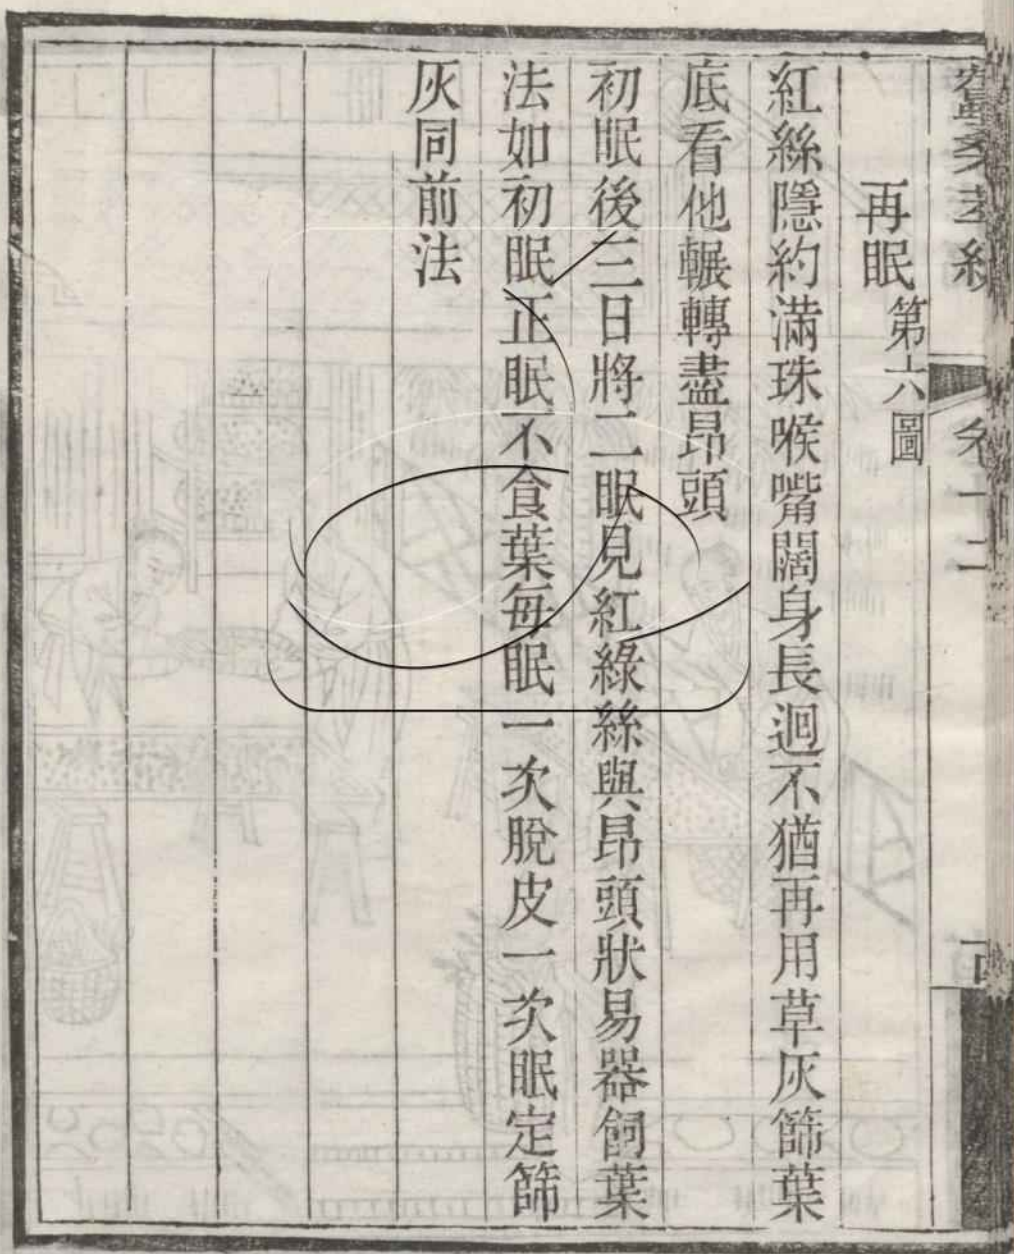 再眠 第六圖
紅絲隱約滿珠喉嘴闊身長迥不猶再用草灰篩葉
底看他輾轉盡昂頭
初眠後三日將二眠見紅綠絲與昂頭狀易器飼葉
法如初眠正眠不食葉每眠一次脫皮一次眠定篩
灰同前法